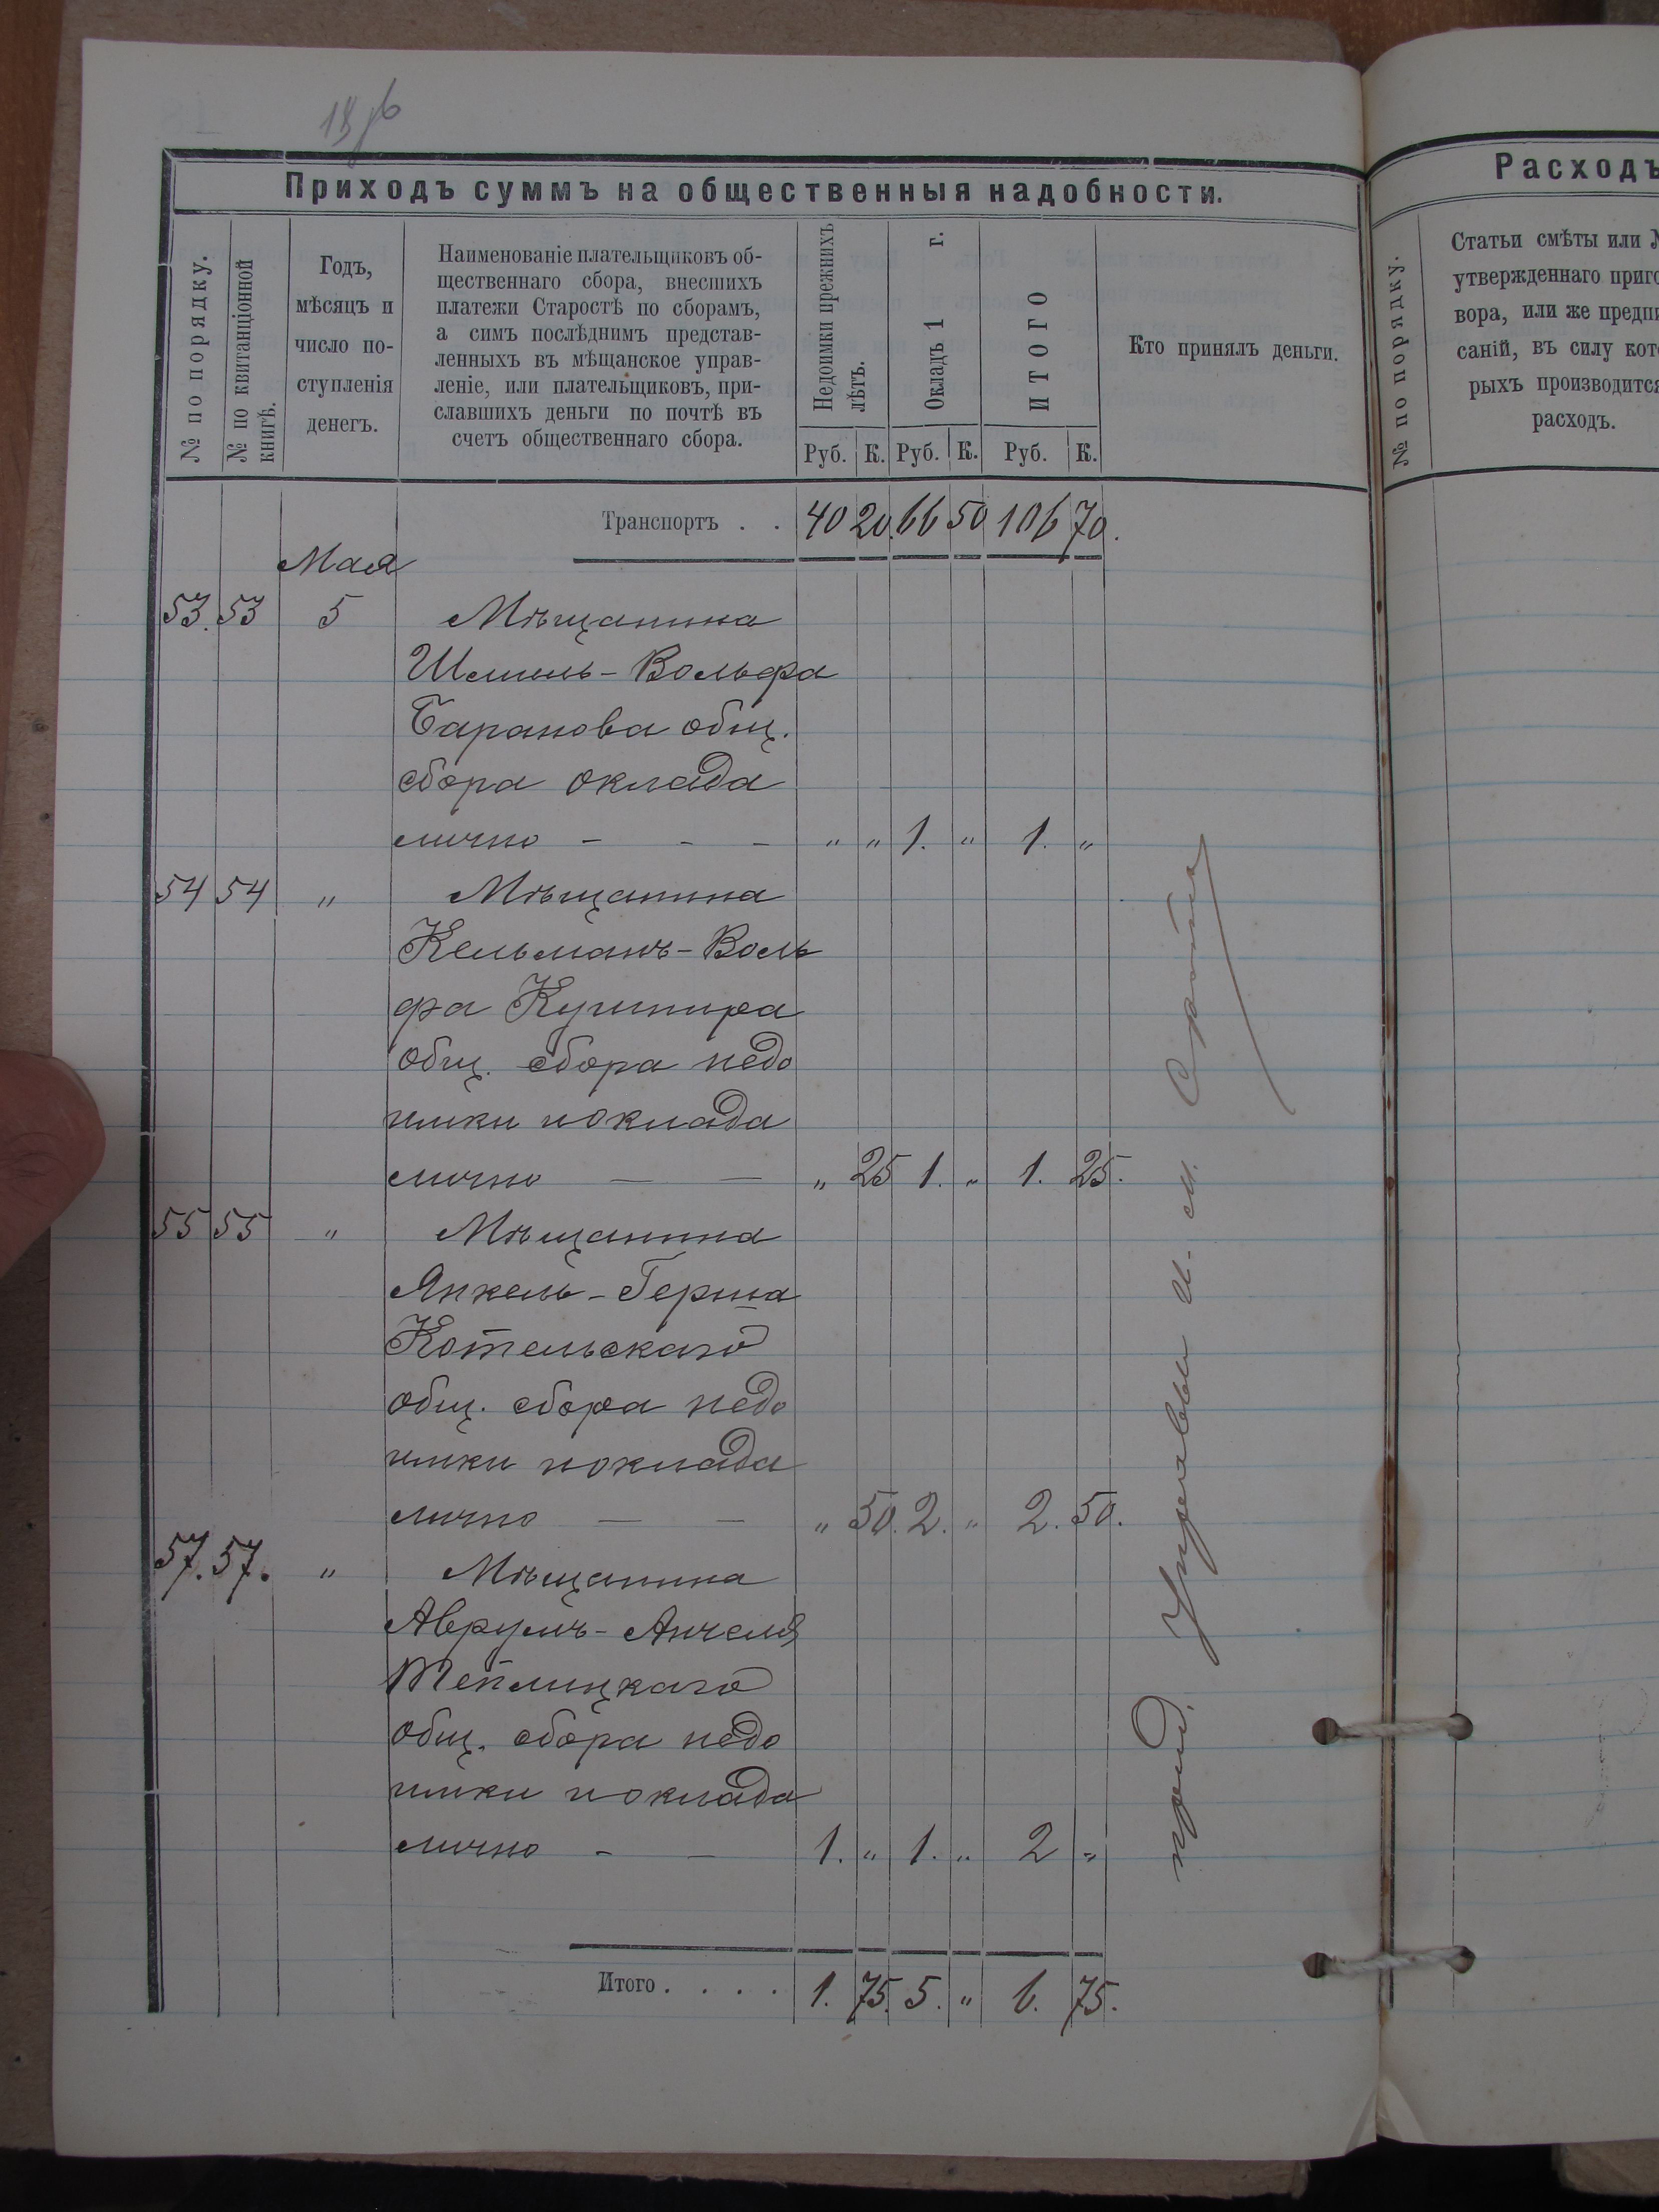 Приходъ суммъ на общественныя надобности.
№ по порядку.
№ по квитанціонной
книгѣ.
Годъ,
мѣсяцъ и
число по-
ступленія
денегъ.
Наименованіе плательщиковъ об-
щественнаго сбора, внесшихъ
платежи Старостѣ по сборамъ,
а симъ послѣднимъ представ-
ленныхъ въ мѣщанское управ-
леніе, или плательщиковъ, при-
славшихъ деньги по почтѣ въ
счетъ общественнаго сбора.
Недоимки прежнихъ
лѣтъ.
Окладъ 1 г.
ИТОГО
Руб. К. Руб. К. Руб. К.
Кто принялъ деньги.
Транспортъ . . 40 20. 66 50 106 70.
Мая
53. 53 5 Мѣщанина
Шмиль-Вольфа
Баранова общ.
сбора оклада
лично - - - " " 1. " 1. "
54 54 " Мѣщанина
Кельманъ-Воль
фа Кушнира
общ. сбора недо
имки иоклада
лично — — " 25 1. " 1. 25.
55 55 " Мѣщанина
Янкель-Герша
Котельскаго
общ. сбора недо
имки иоклада
лично — — " 50. 2. " 2. 50.
57. 57. " Мѣщанина
Аврумъ-Анчеля
Теплицкаго
общ. сбора недо
имки иоклада
лично - — 1. " 1. " 2 "
Итого . . . . 1. 75. 5. " 6. 75.
Управы
Расходъ
№ по порядку.
Статьи смѣты или №
утвержденнаго приго
вора, или же предпи
саній, въ силу кот
рыхъ производится
расходъ.